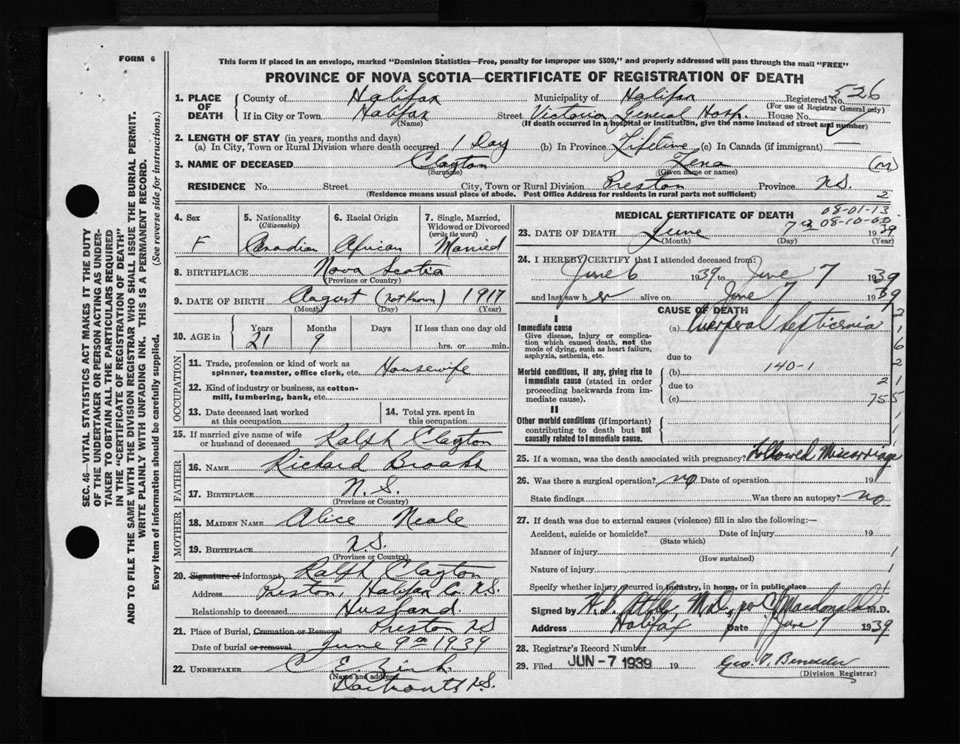 FORM 6
This form if placed in an envelope, marked "Dominion Statistics—Free, penalty for improper use $300," and properly addressed will pass through the mail "FREE"
PROVINCE OF NOVA SCOTIA—CERTIFICATE OF REGISTRATION OF DEATH
1. PLACE OF DEATH
County of Halifax Municipality of Halifax Registered No. 526
(For use of Registrar General only)
If in City or Town Halifax Street Victoria General Hosp. House No.
(Name) (If death occurred in a hospital or institution, give the name instead of street and number)
2. LENGTH OF STAY (in years, months and days)
(a) In City, Town or Rural Division where death occurred 1 Day (b) In Province Lifetime (c) In Canada (if immigrant) —
3. NAME OF DECEASED Clayton Zena (m)
(Surname) (Given name or names)
RESIDENCE No. Street City, Town or Rural Division Preston Province N.S.
(Residence means usual place of abode. Post Office Address for Residents of rural parts not sufficient) 2
4. Sex F
5. Nationality (Citizenship) Canadian
6. Racial Origin African
7. Single, Married, Widowed or Divorced (write the word) Married
8. BIRTHPLACE Nova Scotia
(Province or Country)
9. DATE OF BIRTH August (not known) 1917
(Month) (Day) (Year)
10. AGE in Years Months Days If less than one day old
21 9 hrs. or min.
OCCUPATION
11. Trade, profession or kind of work as spinner, teamster, office clerk, etc. Housewife
12. Kind of industry or business, as cotton-mill, lumbering, bank, etc.
13. Date deceased last worked at this occupation
14. Total yrs. spent in this occupation
15. If married give name of wife or husband of deceased Ralph Clayton
FATHER
16. NAME Richard Brooks
17. BIRTHPLACE N.S.
(Province or Country)
MOTHER
18. MAIDEN NAME Alice Neale
19. BIRTHPLACE N.S.
(Province or Country)
20. Signature of informant Ralph Clayton
Address Preston, Halifax Co. N.S.
Relationship to deceased Husband
21. Place of Burial, Cremation or Removal Preston N.S
Date of burial or removal June 9th 1939
22. UNDERTAKER C. E.
(Name and address)
Dartmouth N.S.
MEDICAL CERTIFICATE OF DEATH
08-01-13
08-10-00
23. DATE OF DEATH June 7th 1939
(Month) (Day) (Year)
24. I HEREBY CERTIFY that I attended deceased from:
June 6 1939 to June 7 1939
and last saw her alive on June 7 1939
CAUSE OF DEATH
I
Immediate cause
Give disease, injury or complication which caused death, not the mode of dying, such as heart failure, asphyxia, asthenia, etc.
(a) Puerperal Septicemia
due to
Morbid conditions, if any, giving rise to immediate cause (stated in order proceeding backwards from immediate cause).
(b) 140-1
due to
(c)
II
Other morbid conditions (if important) contributing to death but not causally related to immediate cause.
25. If a woman, was the death associated with pregnancy? Followed Miscarriage
26. Was there a surgical operation? no Date of operation 19
State findings Was there an autopsy? no
27. If death was due to external causes (violence) fill in also the following:—
Accident, suicide or homicide? Date of injury 19
(State which)
Manner of injury
(How sustained)
Nature of injury
Specify whether injury occurred in industry, in home, or in public place
Signed by M.D., per C Macdonald M.D.
Address Halifax Date June 7 1939
28. Registrar's Record Number
29. Filed JUN -7 1939 19 Geo.
(Division Registrar)
SEC. 46—VITAL STATISTICS ACT MAKES IT THE DUTY OF THE UNDERTAKER OR PERSON ACTING AS UNDERTAKER TO OBTAIN ALL THE PARTICULARS REQUIRED IN THE "CERTIFICATE OF REGISTRATION OF DEATH" AND TO FILE THE SAME WITH THE DIVISION REGISTRAR WHO SHALL ISSUE THE BURIAL PERMIT.
WRITE PLAINLY WITH UNFADING INK. THIS IS A PERMANENT RECORD.
Every item of information should be carefully supplied. (See reverse side for instructions.)